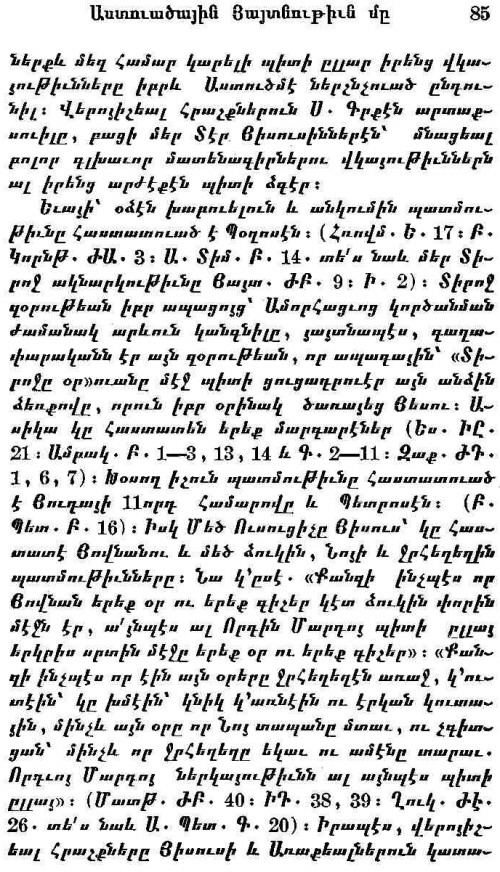 Աստուածային Յայտնութիւն մը 85
ներքև մեզ համար կարելի պիտի ըլլար իրենց վկա-
յութիւնները իբրև Աստուծմէ ներշնչուած ընդու-
նիլ։ Վերոյիշեալ հրաշքներուն Ս. Գրքէն արտաք-
սուիլը, բացի մեր Տէր Յիսուսիններէն՝ մնացեալ
բոլոր գլխաւոր մատենագիրներու վկայութիւններն
ալ իրենց արժէքէն պիտի ձգէր։
Եւայի՝ օձէն խաբուելուն և անկումին պատմու-
թիւնը հաստատուած է Պօղոսէն։ (Հռովմ. Ե. 17։ Բ.
Կորնթ. ԺԱ. 3։ Ա. Տիմ. Բ. 14. տե՛ս նաև մեր Տի-
րոջ ակնարկութիւնը Յայտ. ԺԲ. 9։ Ի. 2)։ Տիրոջ
զօրութեան իբր ապացոյց՝ Ամորհացւոց կործանման
ժամանակ արևուն կանգնիլը, յայտնապէս, գաղա-
փարականն էր այն զօրութեան, որ ապագային՝ «Տի-
րոջը օր»ուանը մէջ պիտի ցուցադրուէր այն անձին
ձեռքովը, որուն իբր օրինակ ծառայեց Յեսու։ Ա-
սիկա կը հաստատեն երեք մարգարէներ (Ես. ԻԸ.
21։ Ամրակ. Բ. 1—3, 13, 14 և Գ. 2—11։ Զաք. ԺԴ.
1, 6, 7)։ Խօսող իշուն պատմութիւնը հաստատուած
է Յուդայի 11որդ համարովը և Պետրոսէն։ (Բ.
Պետ. Բ. 16)։ Իսկ Մեծ Ուսուցիչը Յիսուս՝ կը հաս-
տատէ Յովնանու և մեծ ձուկին, Նոյի և ջրհեղեղին
պատմութիւնները։ Նա կ՚ըսէ. «Քանզի ինչպէս որ
Յովնան երեք օր ու երեք գիշեր կէտ ձուկին փորին
մէջն էր, ա՛յնպէս ալ Որդին Մարդոյ պիտի ըլլայ
երկրիս սրտին մէջը երեք օր ու երեք գիշեր»։ «Քան-
զի ինչպէս որ էին այն օրերը ջրհեղեղէն առաջ, կ՚ու-
տէին՝ կը խմէին՝ կնիկ կ՚առնէին ու էրկան կուտա-
յին, մինչև այն օրը որ Նոյ տապանը մտաւ, ու չգիտ-
ցան՝ մինչև որ ջրհեղեղը եկաւ ու ամէնը տարաւ.
Որդւոյ Մարդոյ ներկայութիւնն ալ այնպէս պիտի
ըլլայ»։ (Մատթ. ԺԲ. 40։ ԻԴ. 38, 39։ Ղուկ. ԺԷ.
26. տե՛ս նաև Ա. Պետ. Գ. 20)։ Իրապէս, վերոյիշ-
եալ հրաշքները Յիսուսի և Առաքեալներուն կատա-